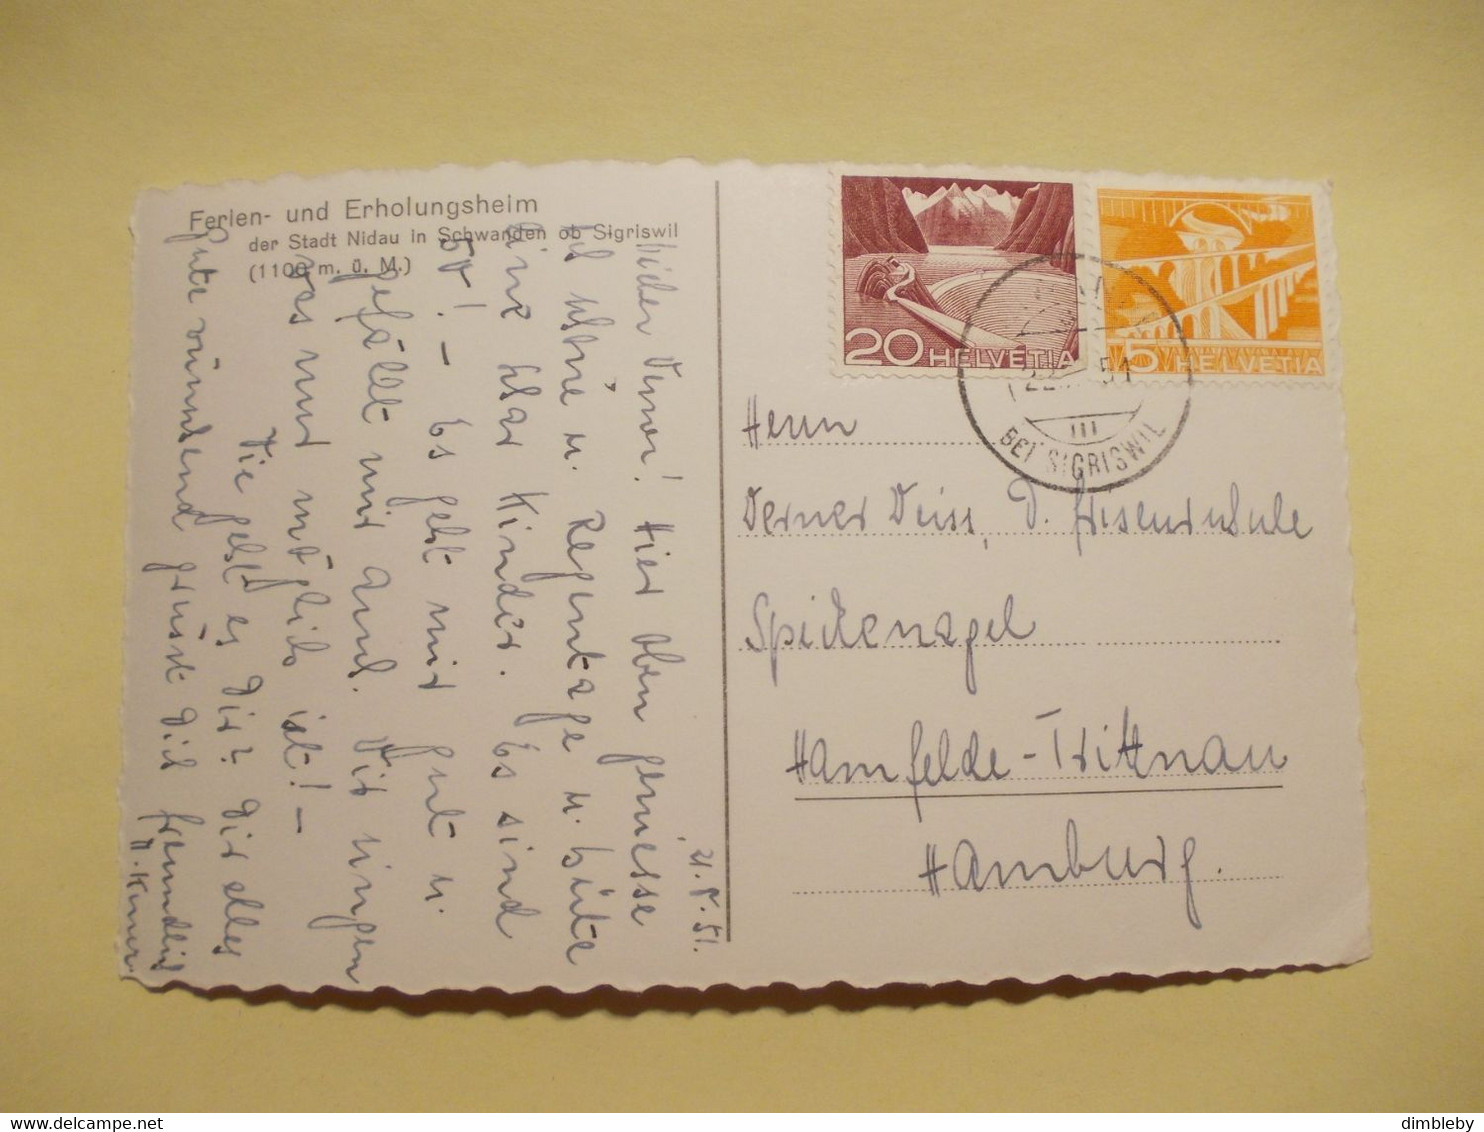 Ferien- und Erholungsheim
der Stadt Nidau in Schwanden ob Sigriswil
(1100 m. ü. M.)
21.8.51.
Lieber Werner! Hier oben geniesse
ich schöne u. Regentage u. hüte
eine Schar Kinder. Es sind
50! – Es geht mir gut u.
gefällt mir auch. Wir singen
was nur möglich ist! –
Wie geht es Dir? Dir alles
Gute wünschend grüsst Dich freundlich
20 HELVETIA
5 HELVETIA
22. 51
III
BEI SIGRISWIL
Herrn
Werner Weiss,
Spitzenagel
Hamfelde-Trittnau
Hamburg.
dimbleby